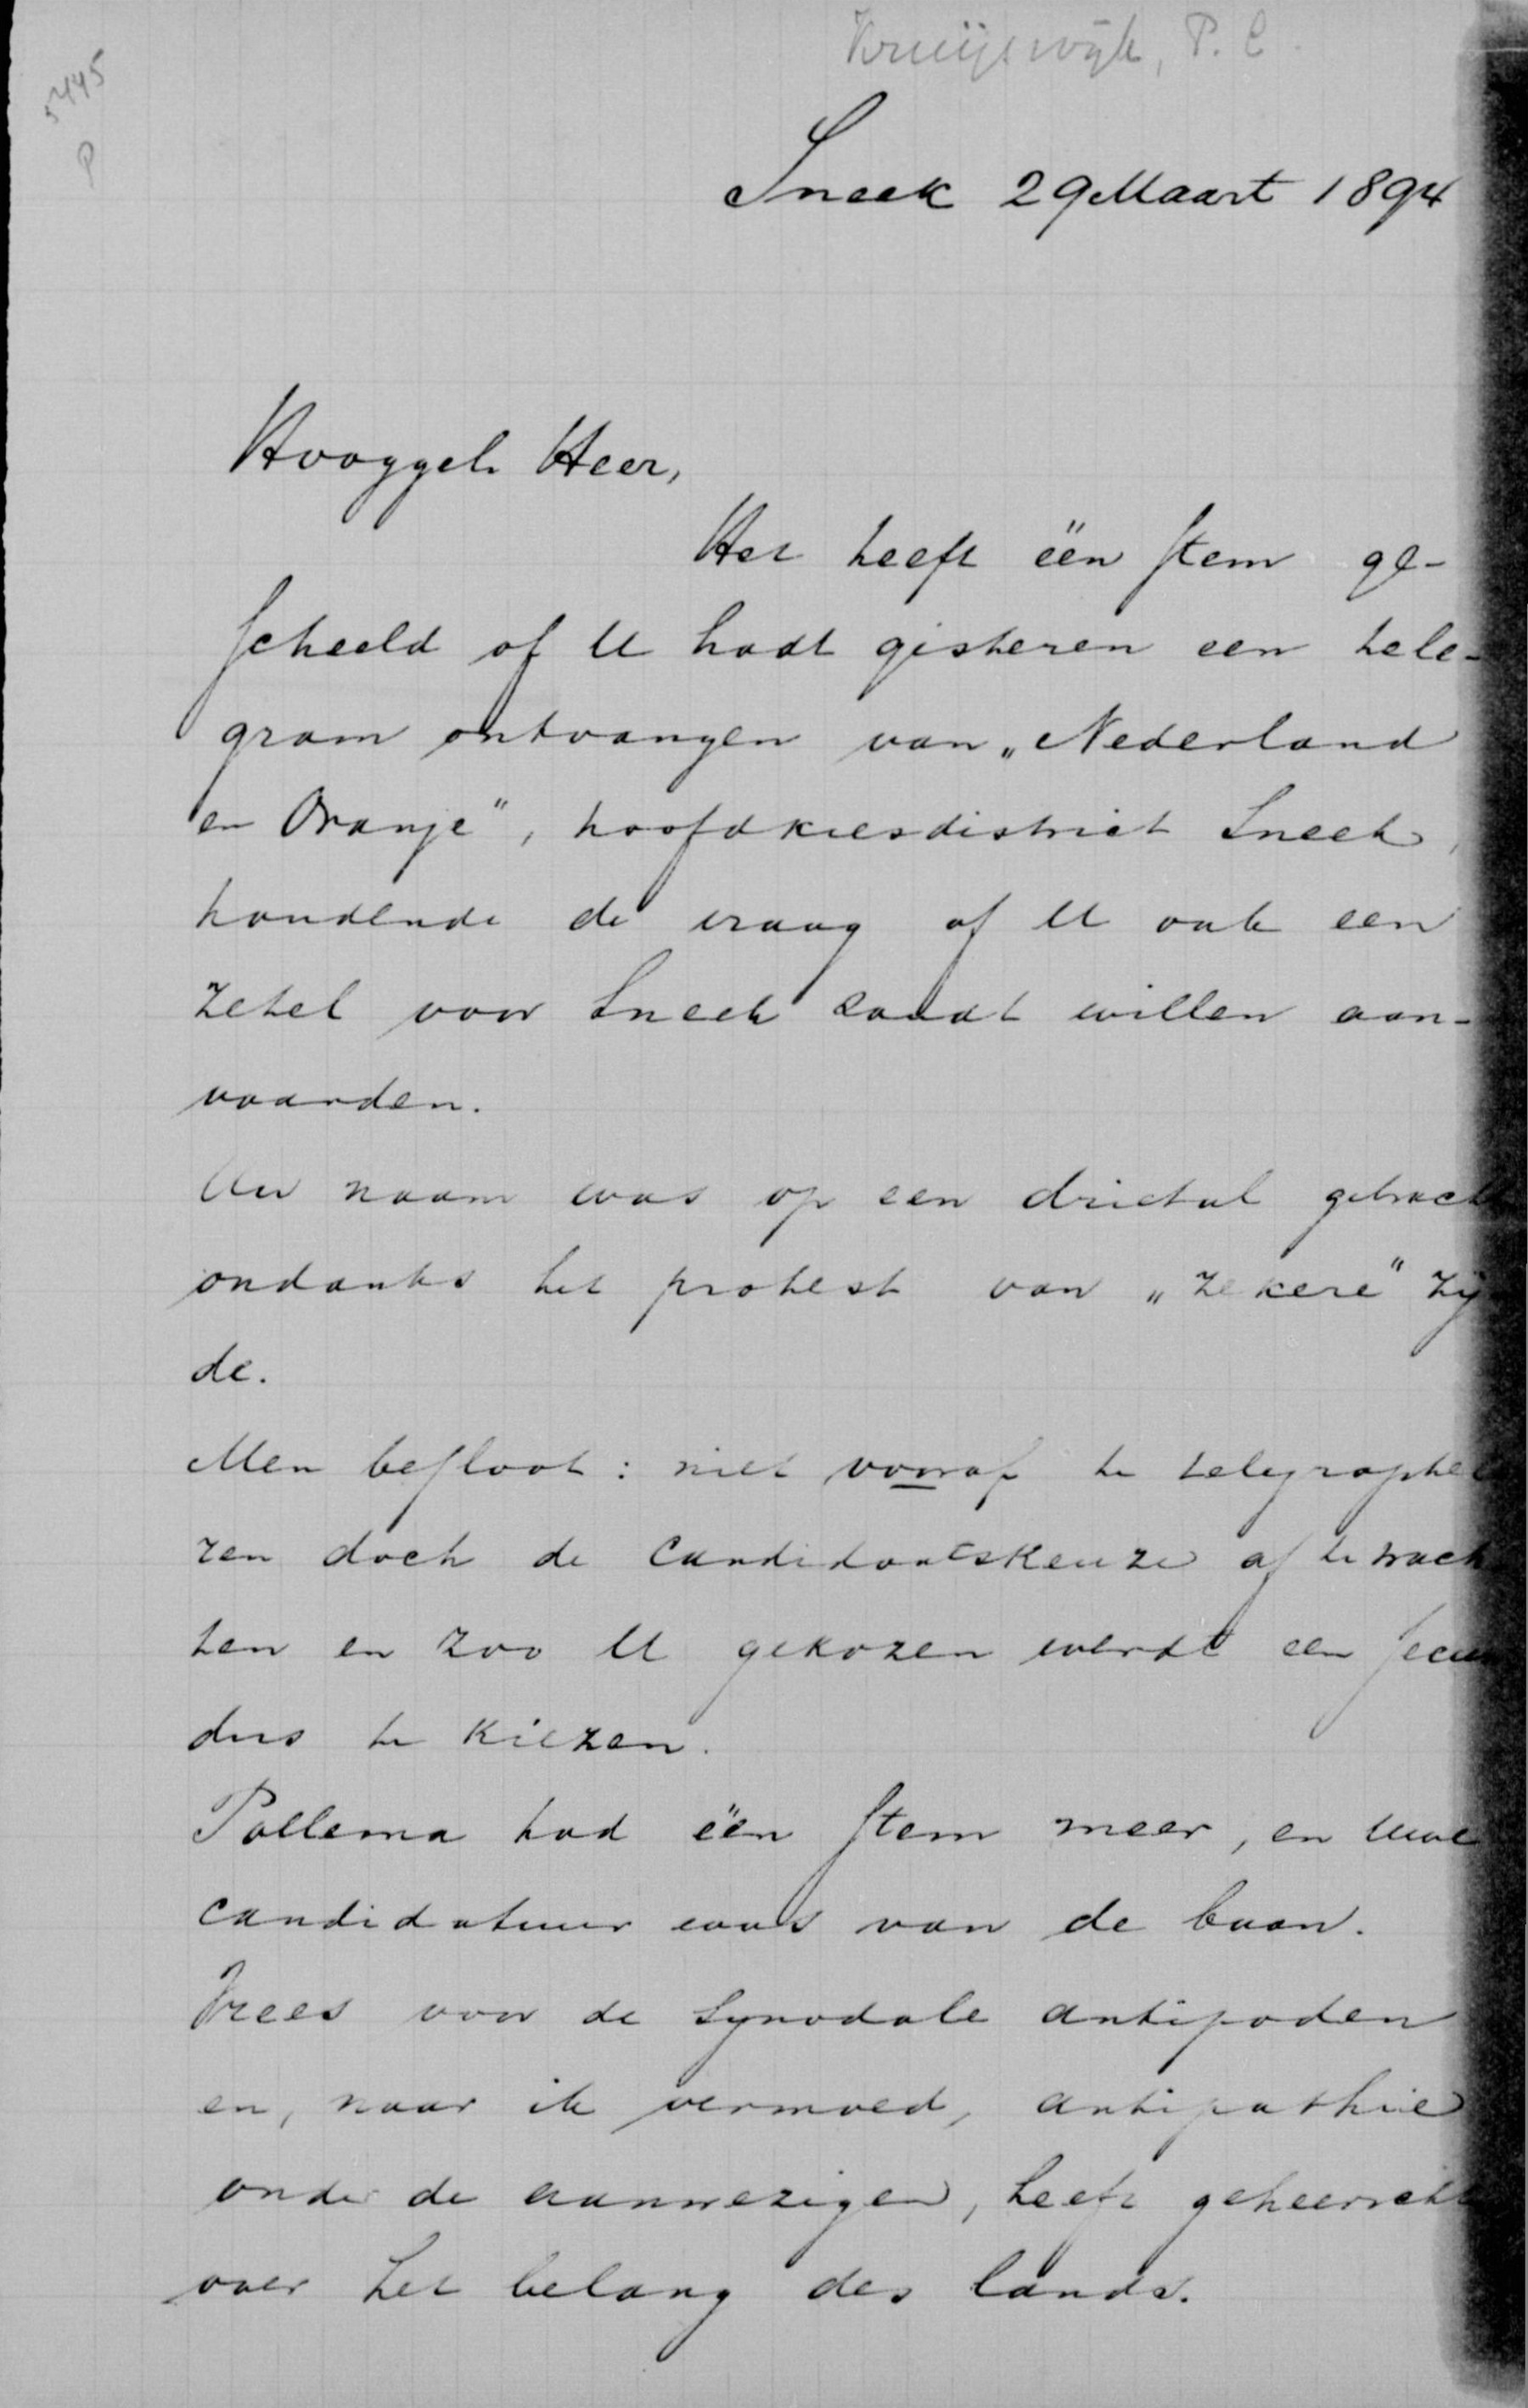 Kruijswijk, P. C.
5445
P
Sneek 29 Maart 1894
Hooggel. Heer,
Het heeft één stem ge-
scheeld of U hadt gisteren een tele-
gram ontvangen van „Nederland
en Oranje", hoofdkiesdistrict Sneek,
houdende de vraag of U ook een
zetel voor Sneek zoudt willen aan-
vaarden.
Uw naam was op een drietal gebracht
ondanks het protest van „zekere" zij
de.
Men besloot: niet vooraf te telegraphee
ren doch de candidaatskeuze af te wach
ten en zoo U gekozen werdt een secun
dus te kiezen.
Pollema had één stem meer, en Uwe
candidatuur was van de baan.
Vrees voor de Synodale antipoden
en, naar ik vermoed, antipathie
onder de aanwezigen, heeft geheerscht
over het belang des lands.